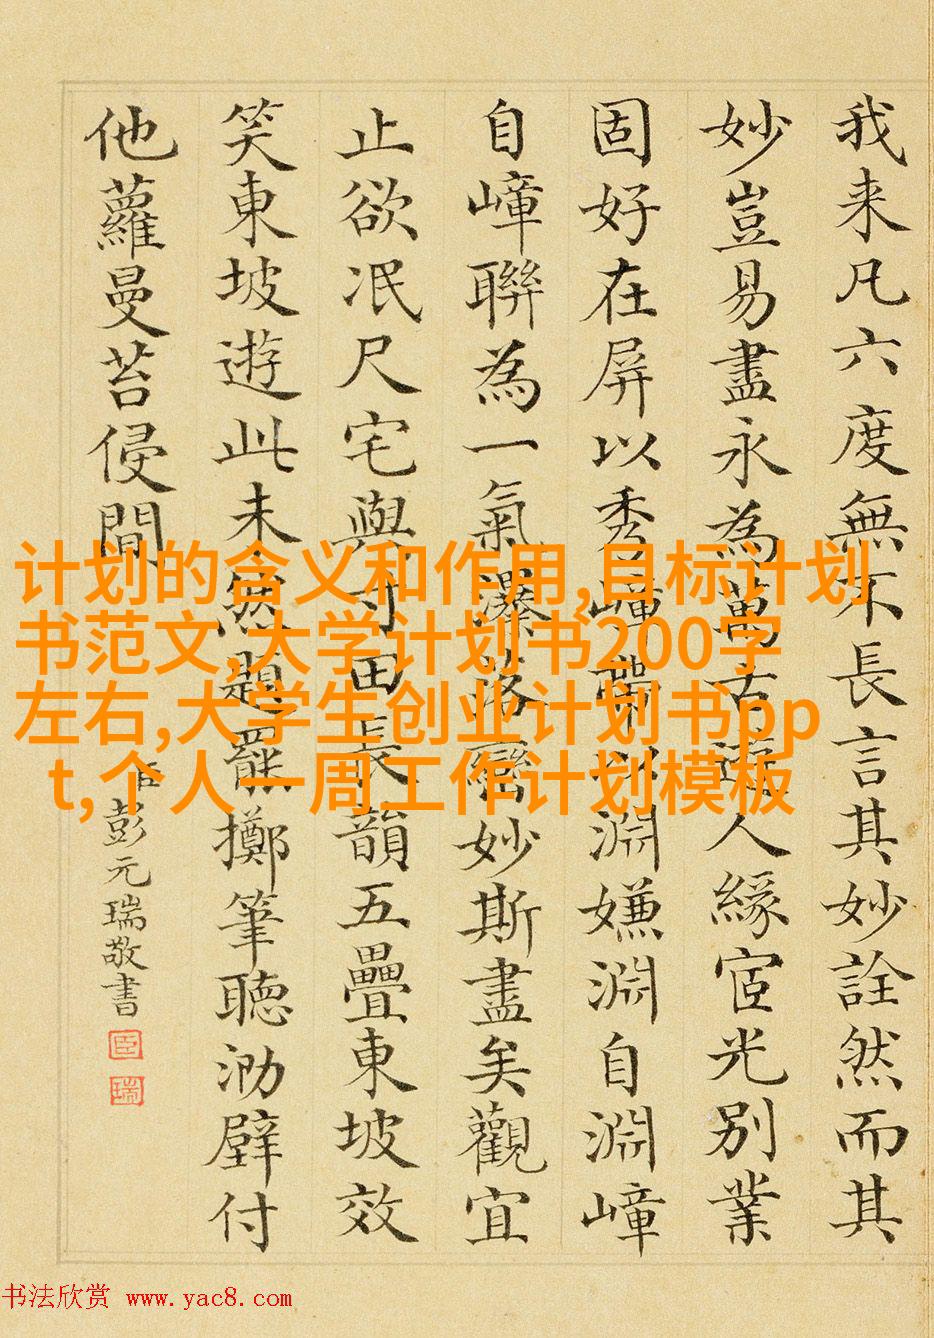 我来凡六度無不長言其妙詮然而其
妙豈易盡永為萬古遊人緣宧光別業
固好在屏以秀嶂淵嫌淵自淵嶂
自嶂聯為一氣落巒妙斯盡矣觀宜
止欲泯尺宅與寸田長韻五疊東坡效
笑東坡遊此未無題罷擲筆聽泐壁付
他蘿曼苔侵間
臣彭元瑞敬書
臣
瑞
计划的含义和作用,目标计划
书范文,大学计划书200字
左右,大学生创业计划书pp
t,个人一周工作计划模板
书法欣赏 www.yac8.com